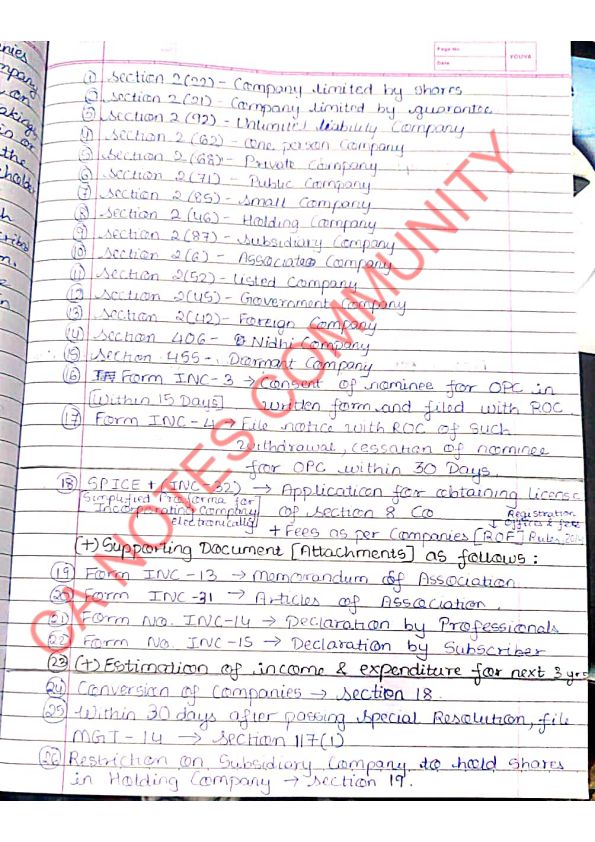 Page No.
Date
YOUVA
① Section 2(22) - Company limited by shares
② Section 2(21) - Company limited by guarantee
③ Section 2(92) - Unlimited liability Company
④ Section 2(62) - One person Company
⑤ Section 2(68) - Private Company
⑥ Section 2(71) - Public Company
⑦ Section 2(85) - Small Company
⑧ Section 2(46) - Holding Company
⑨ Section 2(87) - Subsidiary Company
⑩ Section 2(6) - Associate Company
⑪ Section 2(52) - Listed Company
⑫ Section 2(45) - Government Company
⑬ Section 2(42) - Foreign Company
⑭ Section 406 - Nidhi Company
⑮ Section 455 - Dormant Company
⑯ Form INC-3 → Consent of nominee for OPC in
[Within 15 Days] written form and filed with ROC.
⑰ Form INC-4 → File notice with ROC of such
withdrawal, cessation of nominee
for OPC within 30 Days.
⑱ SPICE + (INC-32) → Application for obtaining license
[Simplified Proforma for Incorporating Company electronically] of section 8 Co
Registration offices & fees
+ Fees as per Companies [ROF] Rules, 2014
(+) Supporting Document [Attachments] as follows:
⑲ Form INC-13 → Memorandum of Association
⑳ Form INC-31 → Articles of Association.
㉑ Form No. INC-14 → Declaration by Professionals
㉒ Form No. INC-15 → Declaration by Subscriber
㉓ (+) Estimation of income & expenditure for next 3 yrs
㉔ Conversion of companies → Section 18.
㉕ Within 30 days after passing Special Resolution, file
MGT-14 → Section 117(1)
㉖ Restriction on Subsidiary Company to hold shares
in Holding Company → Section 19.
CA NOTES COMMUNITY